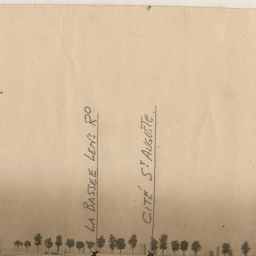 LA BASSEE LENS RD
CITÉ ST AUGUSTE.